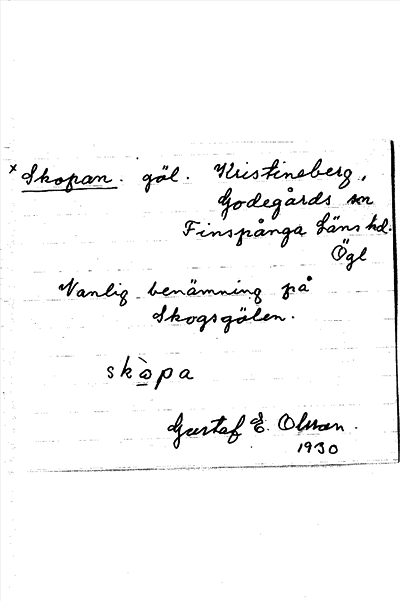 x Skopan. göl. Kristineberg,
Godegårds sn
Finspånga Läns hd.
Ögl
Vanlig benämning på
Skogsgölen.
skò̱pa
Gustaf E. Olsson.
1930